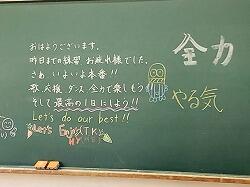 おはようございます。
昨日までの練習 お疲れ様でした。
さあ、いよいよ本番!!
歌、応援、ダンス 全力で楽しもう
そして 最高の1日にしよう!!
Let's do our best!!
Let's Enjoy
全力
やる気